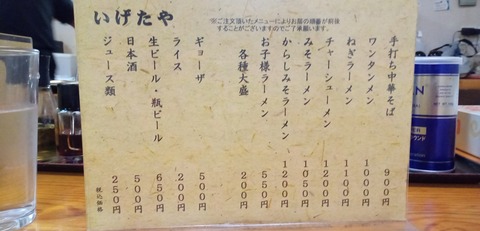 いげたや
※ご注文頂いたメニューによりお届の順番が前後
することがございますのでご了承願います。
手打ち中華そば 900円
ワンタンメン 1000円
ねぎラーメン 1100円
チャーシューメン 1200円
みそラーメン 1050円
からしみそラーメン 1200円
お子様ラーメン 550円
各種大盛 200円
ギョーザ 500円
ライス 200円
生ビール・瓶ビール 650円
日本酒 500円
ジュース類 250円
税込価格